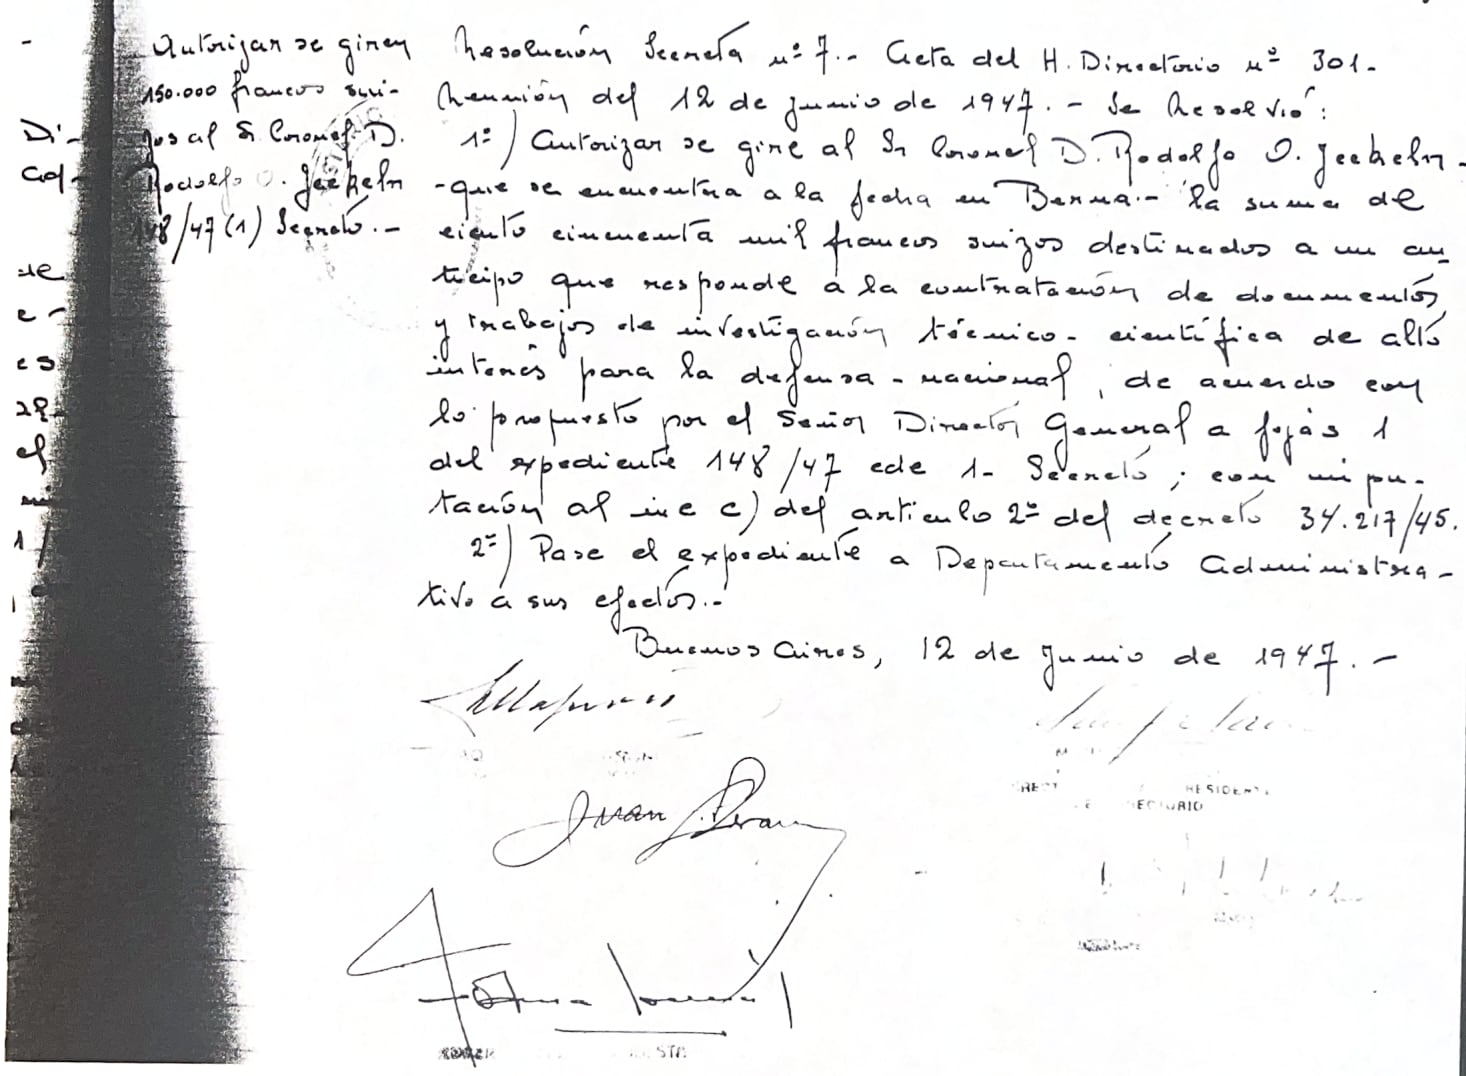 Autorizar se giren
150.000 francos sui-
zos al Sr. Coronel D.
Rodolfo O. Jeckeln
148/47 (1) Secreto.-
Di-
e -
es
1/
Resolución Secreta nº 7.- Acta del H. Directorio nº 301.-
Reunión del 12 de junio de 1947.- Se Resolvió:
1º) Autorizar se gire al Sr Coronel D. Rodolfo O. Jeckeln -
-que se encuentra a la fecha en Berna.- la suma de
ciento cincuenta mil francos suizos destinados a un an-
ticipo que responde a la contratación de documentos
y trabajos de investigación técnico-científica de alto
interés para la defensa-nacional, de acuerdo con
lo propuesto por el Señor Director General a fojas 1
del expediente 148/47 cde 1- Secreto; con impu-
tación al inc c) del articulo 2º del decreto 34.217/45.
2º) Pase el expediente a Departamento Administra-
tivo a sus efectos.-
Buenos Aires, 12 de Junio de 1947.-
Juan Perón